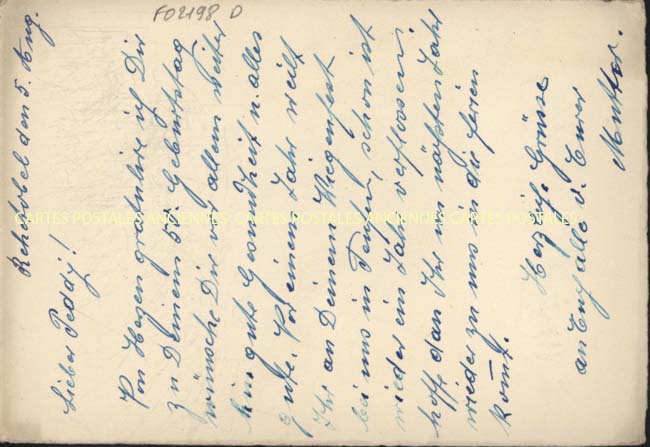 Rehetobel den 5. Aug.
Lieber Peddy!
Von Herzen gratuliere ich Dir
zu Deinem 50. Geburtstag
wünsche Dir vor allem weiter
hin gute Gesundheit u. alles
gute. Vor einem Jahr weilt
Ihr an Deinem Wiegenfest
bei uns in Teufen, schon ist
wieder ein Jahr verflossen.
hoff dan Ihr im nächsten Jahr
wieder zu uns in die ferien
komt.
Herzl. Grüsse
an Euch alle v. Eurer
Mutter.
F02198 D
CARTES POSTALES ANCIENNES CARTES POSTALES ANCIENNES CARTES POSTALES ANCIENNES